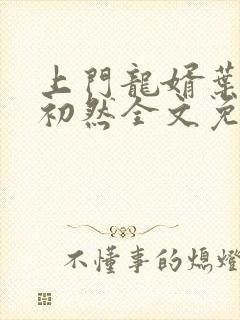 上門龍婿葉
初然全文免
不懂事的熄燈